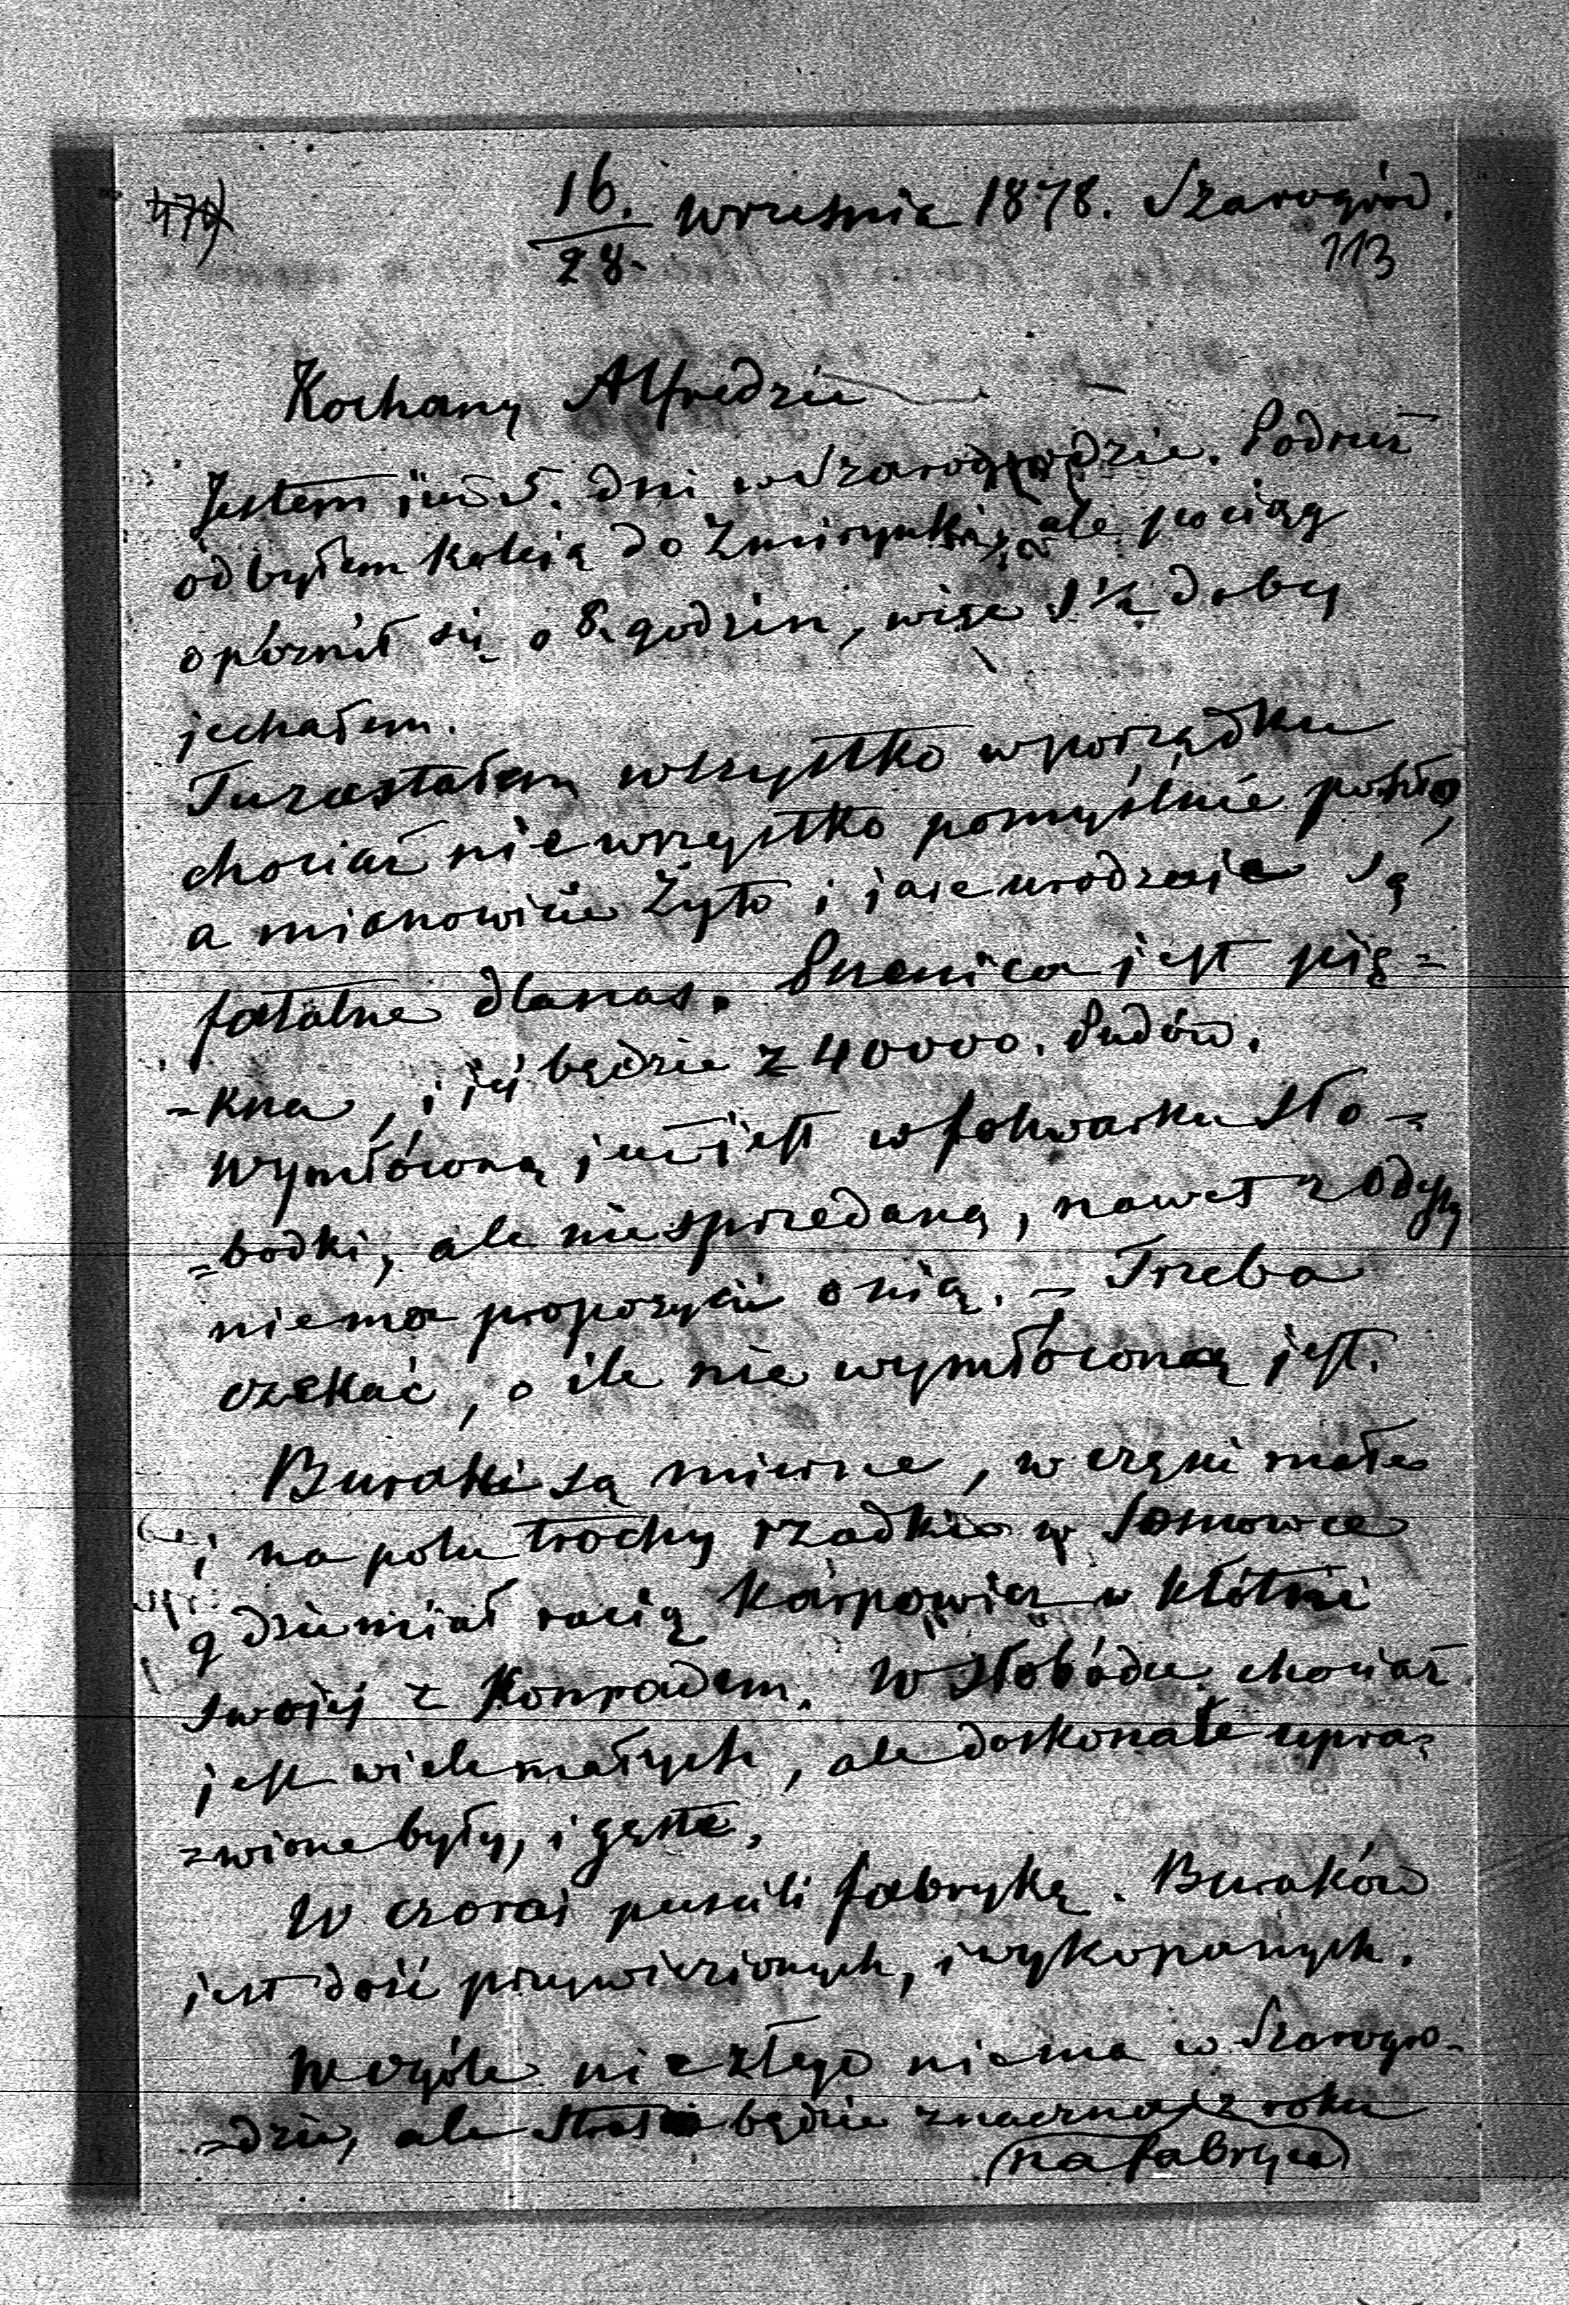 479
16./28. września 1878. Szarogród.
113
Kochany Alfredzie
Jestem już 5. dni w Szarogrodzie. Podruż
odbyłem koleją do Żmirynki, ale pociąg
opóźnił się o 8. godzin, więc 1½ doby
jechałem.
Tu zastałem wszystko w porządku
chociaż nie wszystko pomyślnie poszło,
a mianowicie Żyto i jare urodzaje są
fatalne dla nas. Pszenica jest pię=
=kna, i jej będzie z 40000. Pudów.
Wymłóconą już jest w folwarku Sło=
=bodki, ale nie sprzedaną, nawet z Odessy
niema propozycii o nią. – Trzeba
czekać, o ile nie wymłóconą jest.
Buraki są mierne, w części małe
i na polu trochy rzadkie w Sosnowce
gdzie miał racią Karpowicz w kłótni
swojej z Konradem. W Słobódce chociaż
jest wiele małych, ale doskonale upra=
=wione były, i gęste.
W czoraj puscili fabrykę. Buraków
jest dość przywiezionych, i wykopanych.
W ogóle nic złego niema w Szarogro=
=dzie, ale Strata będzie znaczna z roku
(na fabryce)